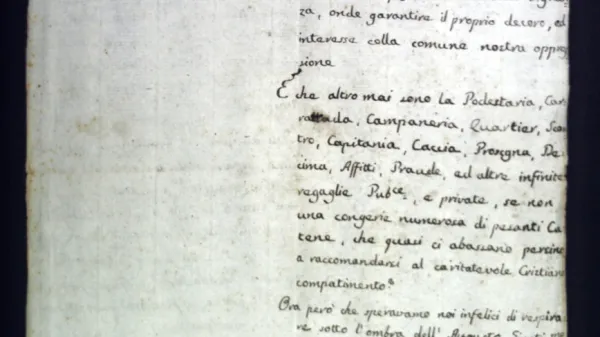 za, onde garantire il proprio decoro, ed
interesse colla comune nostra oppres
sione
E che altro mai sono la Podestaria, Car
rattada, Campaneria, Quartier, Scon
tro, Capitania, Caccia, De
cima, Affitti, Praude, ed altre infinite
regaglie Pubce, e private, se non
una congerie numerosa di pesanti Ca
tene, che quasi ci abassano percino
a raccomandarci al caritatevole Cristiano
compatimento
Ora però che speravamo noi infelici di respira
re sotto l'ombra dell'